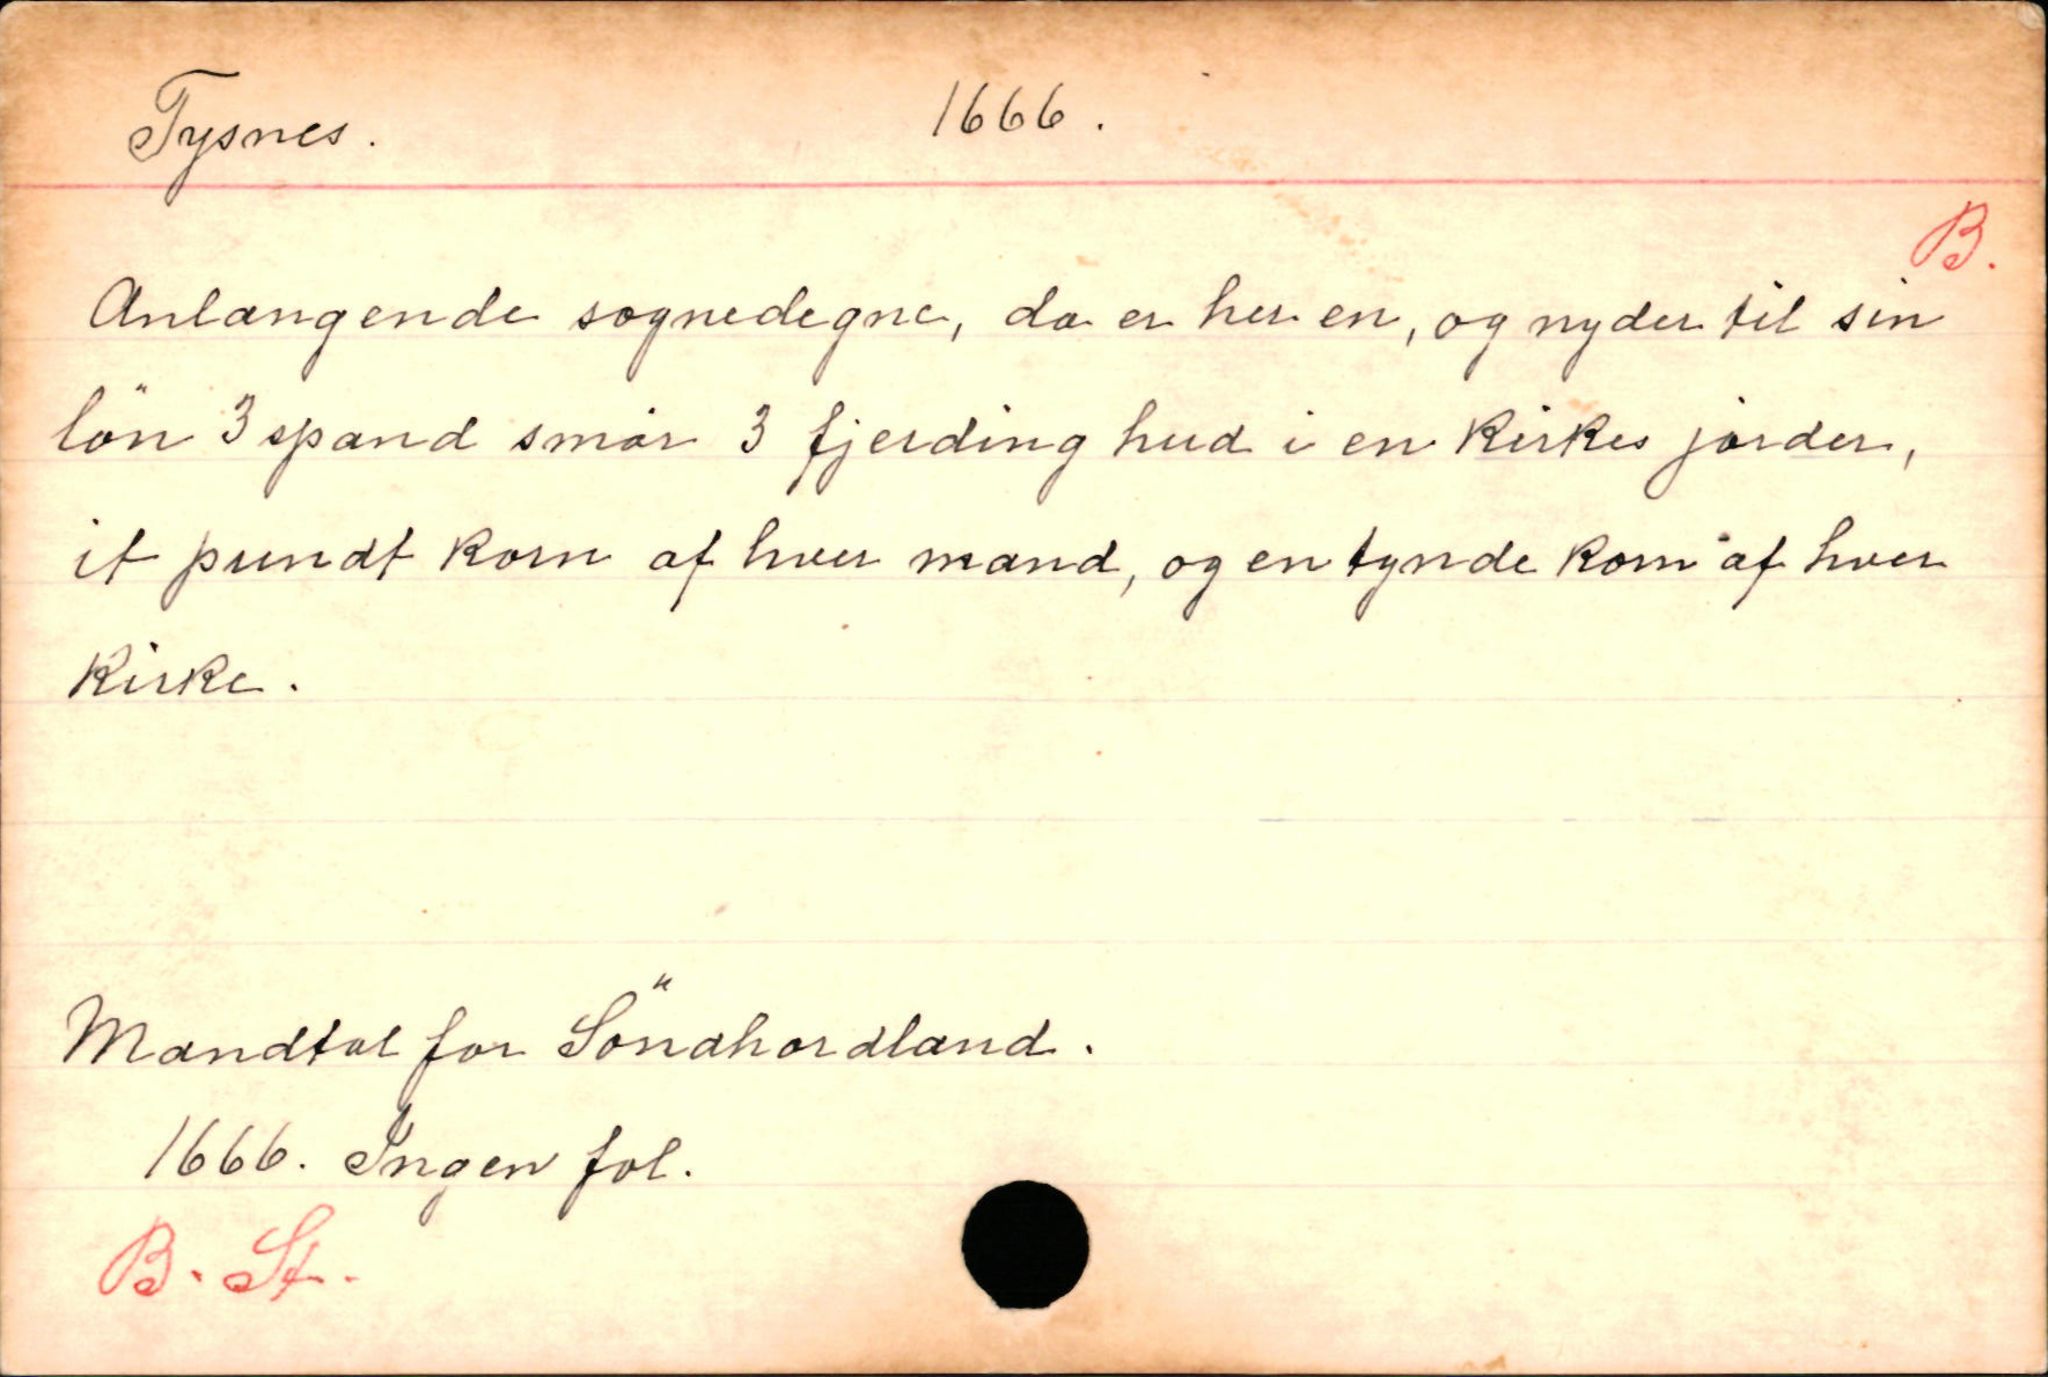 Tysnes. 1666.
B.
Anlangende sognedegne, da er her en, og nyder til sin
lön 3 spand smör 3 fjerding hud i en kirkes jorder,
it pundt korn af hver mand, og en tynde korn af hver
kirke.
Mandtal for Söndhordland.
1666. Ingen fol.
B. St.